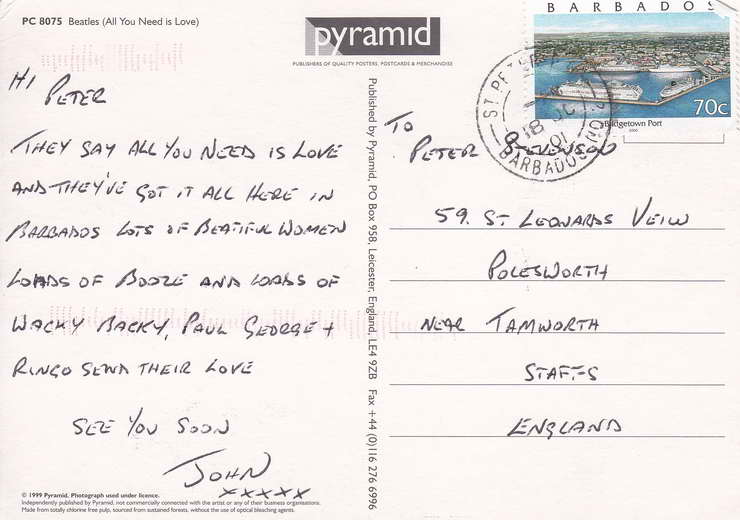 PC 8075 Beatles (All You Need is Love)
pyramid
PUBLISHERS OF QUALITY POSTERS, POSTCARDS & MERCHANDISE
BARBADOS
70c
Bridgetown Port
2000
ST. PETER
18 OC
01
BARBADOS
HI PETER
THEY SAY ALL YOU NEED IS LOVE
AND THEY'VE GOT IT ALL HERE IN
BARBADOS LOTS OF BEATIFUL WOMEN
LOADS OF BOOZE AND LOADS OF
WACKY BACKY, PAUL GEORGE +
RINGO SEND THEIR LOVE
SEE YOU SOON
JOHN
xxxxx
© 1999 Pyramid. Photograph used under licence.
Independently published by Pyramid, not commercially connected with the artist or any of their business organisations.
Made from totally chlorine free pulp, sourced from sustained forests, without the use of optical bleaching agents.
Published by Pyramid, PO Box 958, Leicester, England, LE4 9ZB Fax +44 (0)116 276 6996
TO
PETER STEVENSON
59. ST LEONARDS VEIW
POLESWORTH
NEAR TAMWORTH
STAFFS
ENGLAND